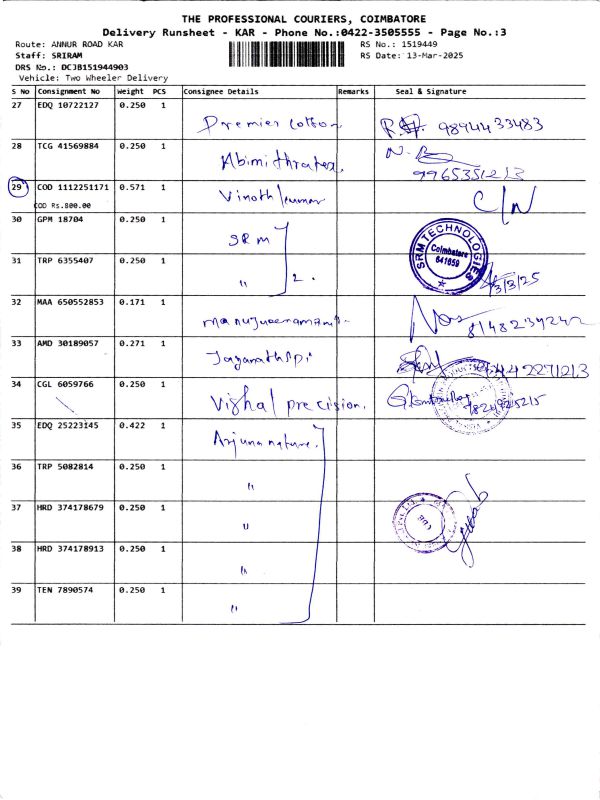 THE PROFESSIONAL COURIERS, COIMBATORE
Delivery Runsheet - KAR - Phone No.:0422-3505555 - Page No.:3
Route: ANNUR ROAD KAR RS No.: 1519449
Staff: SRIRAM RS Date: 13-Mar-2025
DRS No.: DCJB151944903
Vehicle: Two Wheeler Delivery
S No Consignment No Weight PCS Consignee Details Remarks Seal & Signature
27 EDQ 10722127 0.250 1 Premier cotton 9894433483
28 TCG 41569884 0.250 1 Abimithratex. 9965351213
29 COD 1112251171 0.571 1 Vinothkumar C/N
COD Rs.800.00
30 GPM 18704 0.250 1 SRM SRM TECHNOLOGIES Coimbatore 641659
31 TRP 6355407 0.250 1 " 2. 13/3/25
32 MAA 650552853 0.171 1
33 AMD 30189057 0.271 1
34 CGL 6059766 0.250 1 Vishal precision.
35 EDQ 25223145 0.422 1 Arjuna nature.
36 TRP 5082814 0.250 1 "
37 HRD 374178679 0.250 1 "
38 HRD 374178913 0.250 1 "
39 TEN 7890574 0.250 1 "